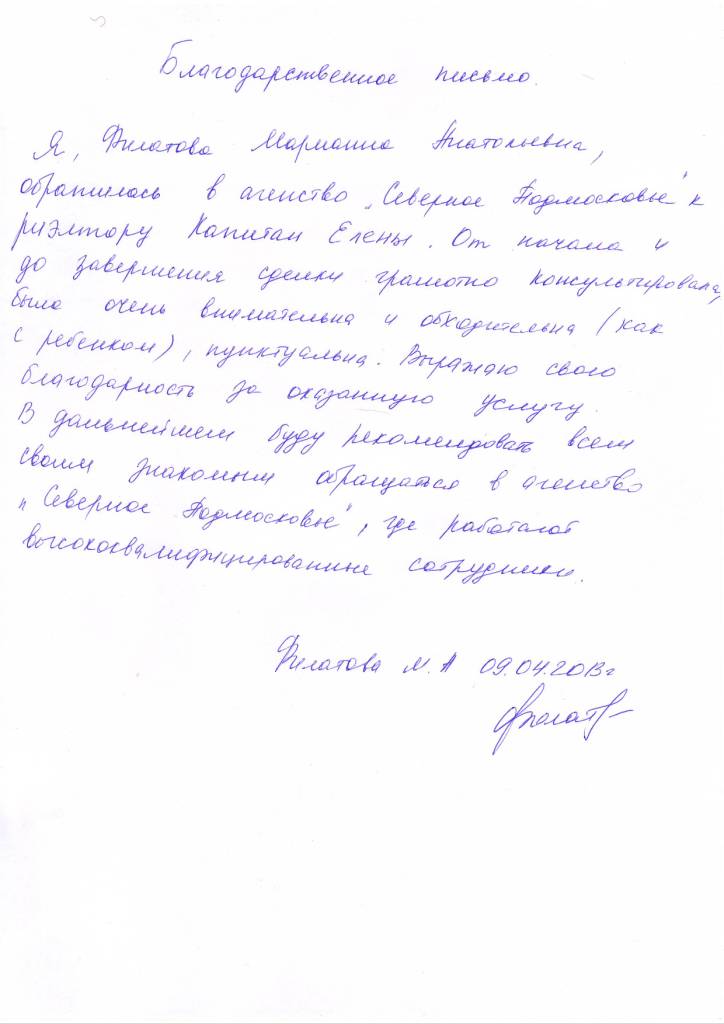 Благодарственное письмо.
Я, Филатова Марианна Анатольевна,
обратилась в агенство „Северное Подмосковье" к
риэлтору Капитан Елены. От начала и
до завершения сделки грамотно консультировала,
была очень внимательна и обходительна (как
с ребенком), пунктуальна. Выражаю свою
благодарность за оказанную услугу.
В дальнейшем буду рекомендовать всем
своим знакомым обращаться в агенство
„Северное Подмосковье", где работают
высококвалифицированные сотрудники.
Филатова М.А 09.04.2013г